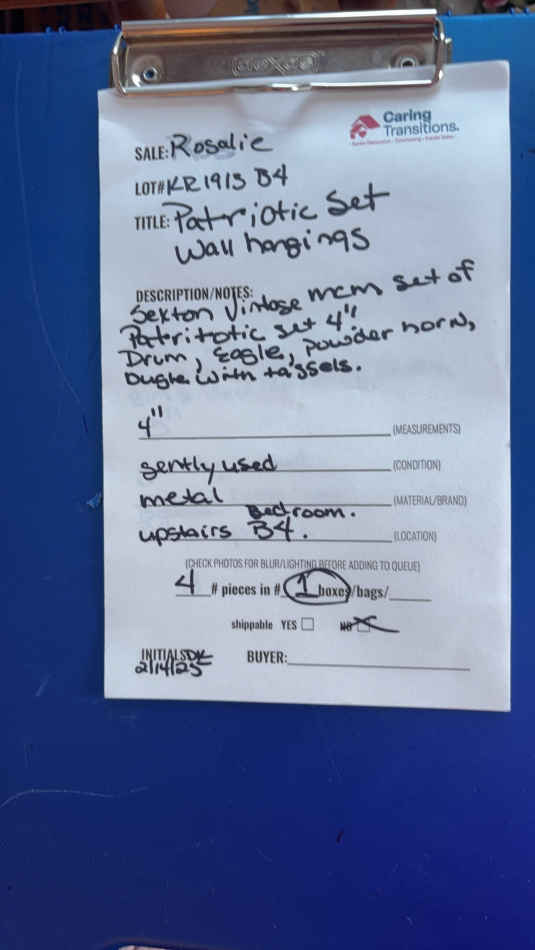 Caring
Transitions.
SALE: Rosalie
LOT# KR1913 B4
TITLE: Patriotic Set
Wall hangings
DESCRIPTION/NOTES:
Sexton Vintage mcm set of
Patritotic set 4"
Drum, Eagle, Powder horn,
bugle with tassels.
4" (MEASUREMENTS)
gently used (CONDITION)
metal (MATERIAL/BRAND)
Bedroom.
upstairs B4. (LOCATION)
(CHECK PHOTOS FOR BLUR/LIGHTING BEFORE ADDING TO QUEUE)
4 # pieces in # 1 boxes/bags/
shippable YES NO
INITIALS DK BUYER:
2/14/25